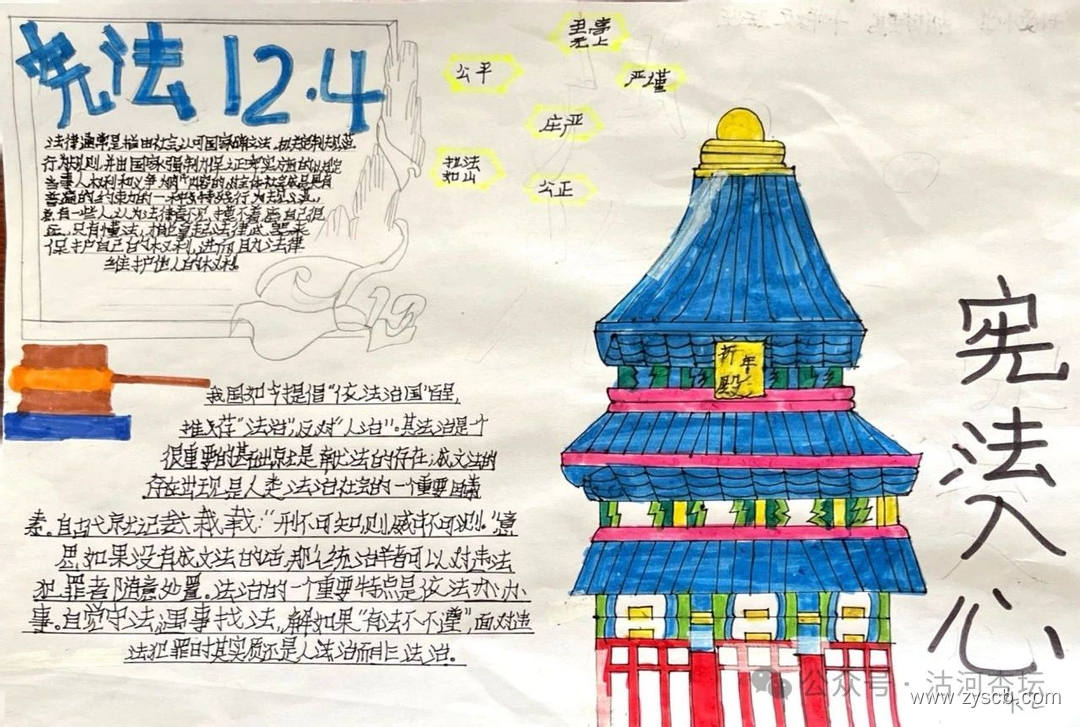 宪法 12.4
法律通常是指由社会认可国家确立法,
行为规则,并由国家强制力保证
当事人权利和义务为内容的
普遍的约束力的一种特殊行为
有一些人认为法律看不见,摸不着,离自己很
远,只有懂法,才能拿起法律武器来
保护自己的权利,进而且为法律
维护他人的权利。
至高无上
公平
严谨
庄严
执法如山
公正
祈年殿
宪法入心
我国如今提倡“依法治国”旨是,
推荐“法治”,反对“人治”。其法治是个
很重要的基础就是成文法的存在,成文法的
存在出现是人类法治社会的一个重要因
素。自古代就记载载载:“刑不可知,则威不可测。”意
思如果没有成文法的话,那么统治者可以对违法
犯罪者随意处置。法治的一个重要特点是依法办办
事。自觉守法,遇事找法,解如果“有法不不遵”,面对违
法犯罪时其实质还是人法治而非法治。
公众号·沽河杏坛
www.zyscb.com